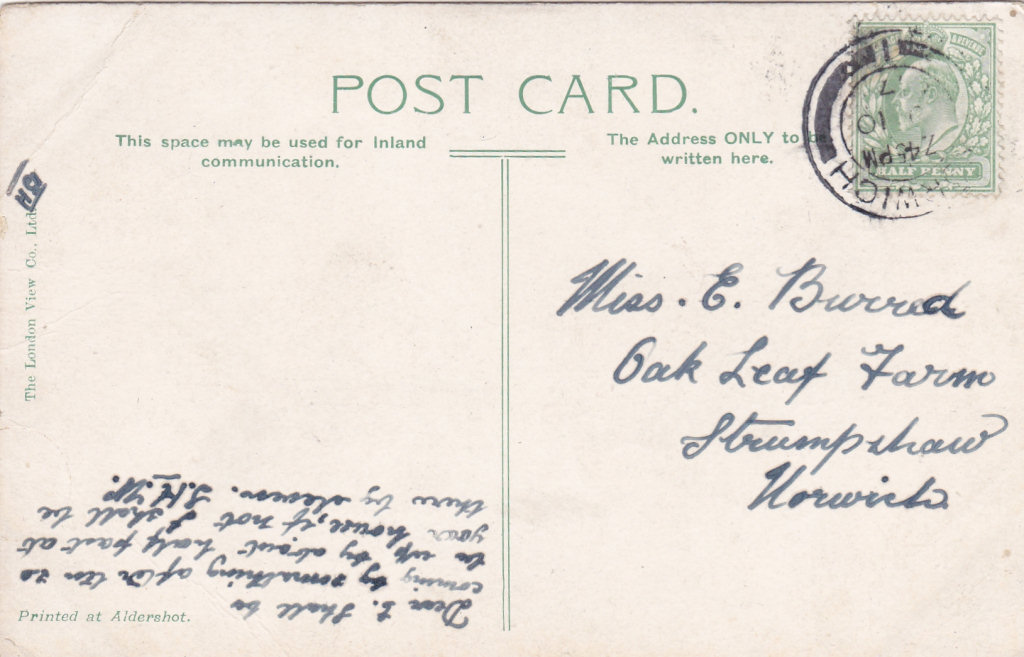 POST CARD.
This space may be used for Inland
communication.
The Address ONLY to be
written here.
HALF PENNY
7.45 PM
10
The London View Co., Ltd.
Miss. E. Burred
Oak Leaf Farm
Strumpshaw
Norwich
Dear E. Shall be
coming by something after ten so
be up by about half past at
your house, if not I shall be
there by eleven.
Printed at Aldershot.